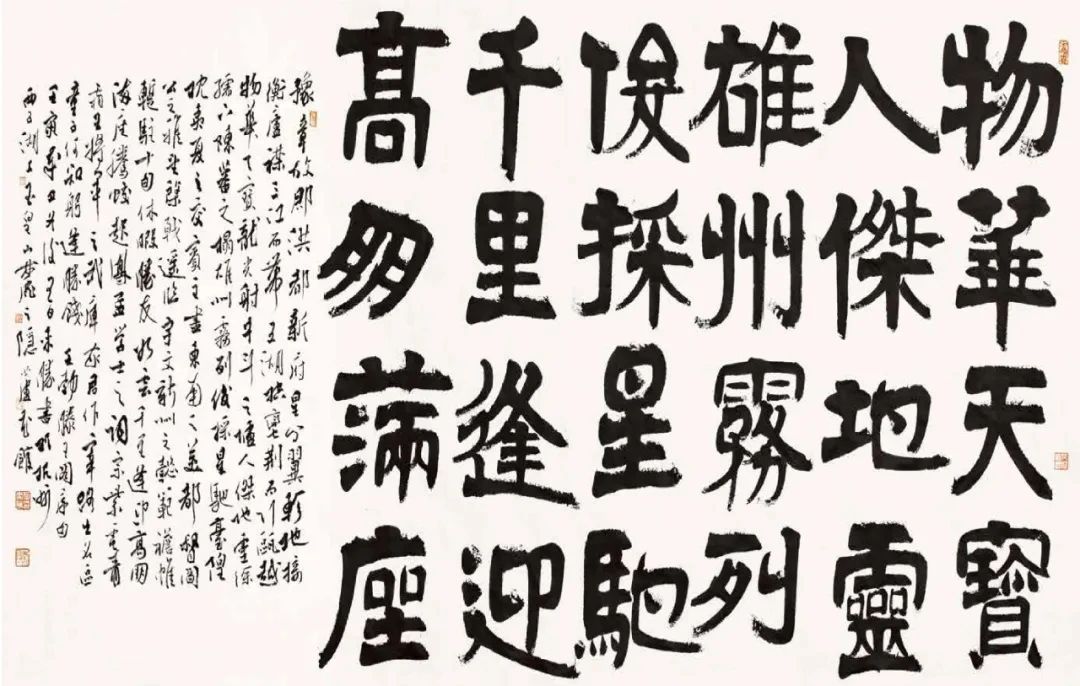 物華天寶
人傑地靈
雄州霧列
俊採星馳
千里逢迎
高朋滿座
豫章故郡洪都新府星分翼軫地接
衡廬襟三江而帶五湖控蠻荊而引甌越
物華天寶龍光射斗牛之墟人傑地靈徐
孺下陳蕃之榻雄州霧列俊採星馳臺隍
枕夷夏之交賓主盡東南之美都督閻
公之雅望棨戟遙臨宇文新州之懿範襜帷
暫駐十旬休暇勝友如雲千里逢迎高朋
滿座騰蛟起鳳孟學士之詞宗紫電青
霜王將軍之武庫家君作宰路出名區
童子何知躬逢勝餞 王勃滕王閣序句
壬寅
西子湖上玉皇山麓之隱